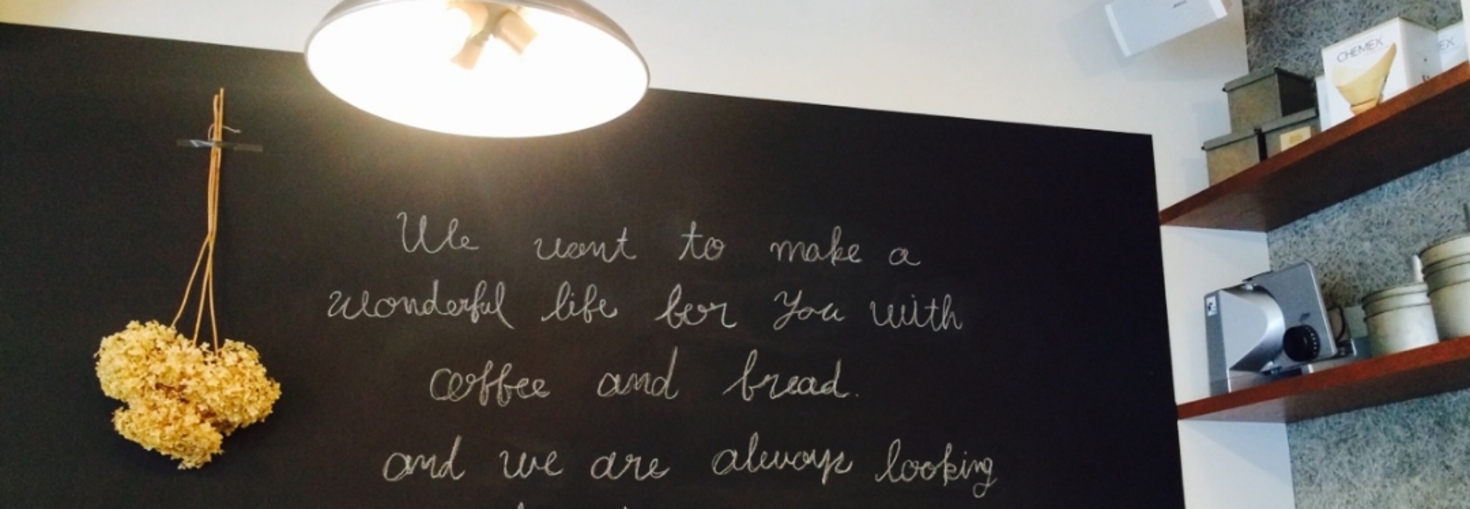 We want to make a
wonderful life for you with
coffee and bread.
and we are always looking
CHEMEX